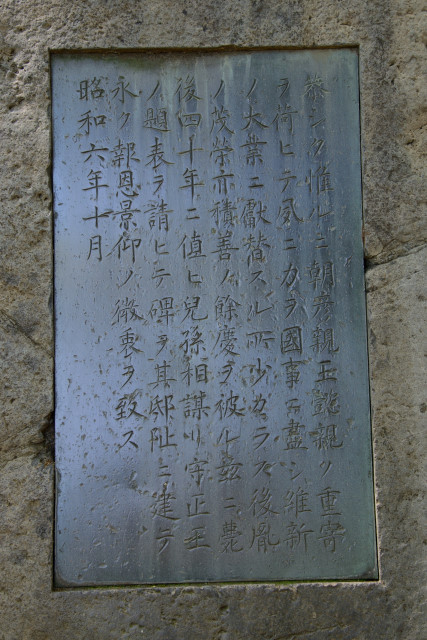 恭シク惟ルニ朝彦親王懿親ノ重寄
ヲ荷ヒテ夙ニ力ヲ國事ニ盡シ維新
ノ大業ニ獻替スル所少カラス後胤
ノ茂榮亦積善ノ餘慶ヲ被ル茲ニ薨
後四十年ニ値ヒ兒孫相謀リ守正王
ノ題表ヲ請ヒテ碑ヲ其邸阯ニ建テ
永ク報恩景仰ノ微衷ヲ致ス
昭和六年十月